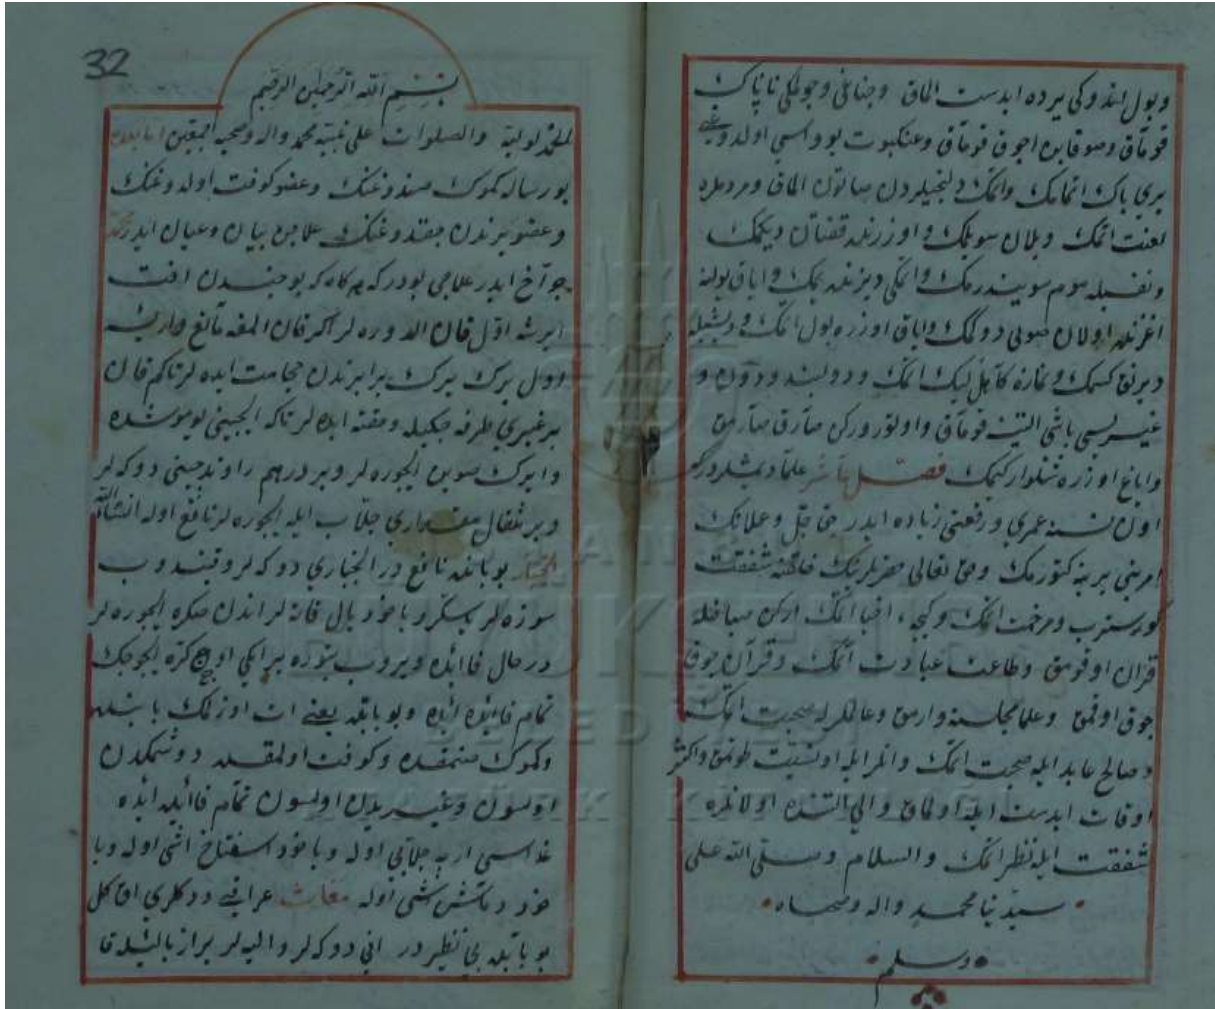 وبول ایندوکی یرده ابدست الماق وچناغی وچولمکی ناپاک
قومّاق وصو قابن اچوق قومّاق وعنکبوت یوواسی اولدوغی
یری پاک اتمامک واتمک دلنجیلردن صاتون الماق ومردملره
لعنت اتمک ویلان سویلمک واوزرنده قفتان دیکمک
ونفسیله موم سویندرمک واتمکی دیزنده یمک وایاق یولنه
اغزنده اولان صویی دوکمک وایاق اوزره بول اتمک ودیشیله
دیرنق کسمک ونمازه کاهل لیک اتمک ودولبند ودون و
غیریسی باشی التینه قومّاق واوتورورکن صارق صارمق
وایاغ اوزره شلوار کیمک فصل عاشر علما دیمشلردرکه
اون نسنه عمری ورفعتی زیاده ایدر حق جل وعلانک
امرینی یرینه کتورمک وحق تعالی حضرتلرنک خلقنه شفقت
کوسترب ومرحمت اتمک وکیجه احیا اتمک ارکن صباحله
قران اوقومق وطاعت عبادت اتمک وقرآن چوق
چوق اوقمق وعلما مجلسنه وارمق وعالملرله صحبت اتمک
وصالح عابد ایله صحبت اتمک وانلر ایله اونسیت طوتمق واکثر
اوقات ابدست ایله اولماق والی التنده اولانلره
شفقت ایله نظر اتمک والسلام وصلی الله علی
سیدنا محمد واله وصحبه
وسلم
32
بسم الله الرحمن الرحیم
الحمد لولیه والصلوات علی نبیه محمد واله وصحبه اجمعین اما بعد
بو رساله کموک صندوغنک وعضو کوفت اولدوغنک
وعضو یرندن چقدوغنک علاجن بیان وعیان ایدر
جراح ایدر علاجی بودر که هرکاه که بو جنسدن افت
ایرشه اوّل قان الدوره لر اکر قان المغه مانع واریسه
اول یرک برابرندن حجامت ایده لر تاکم قان
بر غیری طرفه چکیله وحقنه ایده لر تاکه ایچینی یوموشده
صوین ایچوره لر وبر درهم راوند چینی دوکه لر
وبر مثقال مقداری جلاب ایله ایچوره لر نافع اوله انشاالله
انجبار بو بابده نافع در انجباری دوکه لر وقیندوب
سوزه لر شکر ویاخود بالی قاته لر اندن صکره ایچوره لر
درحال فائده ویروب بتوره بر ایکی اوچ کره ایچیجک
تمام فائده ایده وبو بابده یعنی ات اوزلمک بابنده
وکموک صنمقده وکوفت اولمقده دوشمکدن
اولسون وغیریدن اولسون تمام فائده ایده
غداسی ارپه جلابی اوله ویاخود اسفناخ اشی اوله ویا
خود ماش اشی اوله مغاث عراقی دوکلری اق کل
بو بابده بی نظیر در انی دوکه لر والیه لر براز بالیله قا